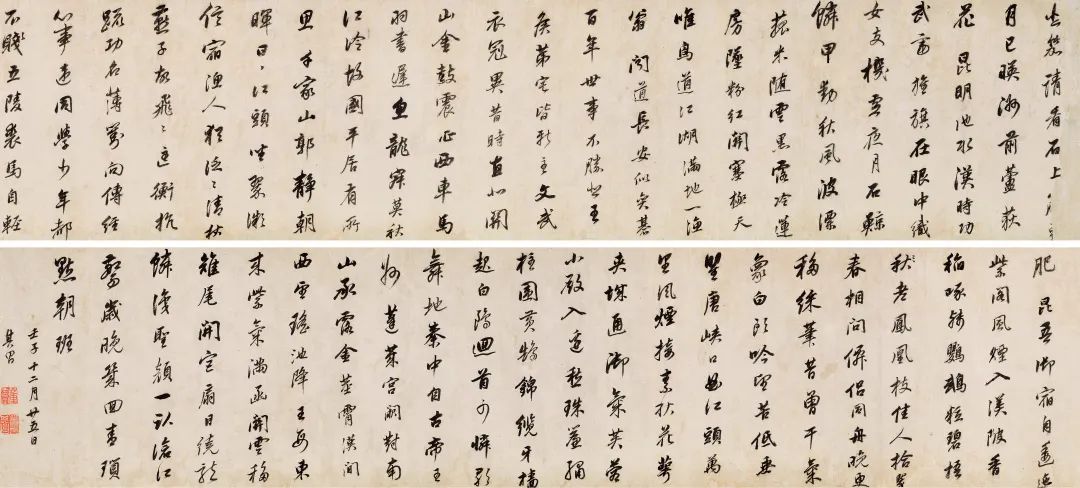 悲笳請看石上
月已暎洲前蘆荻
花 昆明池水漢時功
武帝旌旗在眼中織
女支機虛夜月石鯨
鱗甲動秋風波漂
菰米随雲黑露冷蓮
房墜粉紅關塞極天
唯鳥道江湖滿地一漁
翁 聞道長安似奕碁
百年世事不勝悲王
矦第宅皆新主文武
衣冠異昔時直北關
山金鼓震征西車馬
羽書遲魚龍寂寞秋
江冷故國平居有所
思 千家山郭靜朝
暉日々江頭坐翠微
信宿漁人猶泛々清秋
燕子故飛々匡衡抗
疏功名薄劉向傳經
心事違同學少年都
不賤五陵裘馬自輕
肥 昆吾御宿自逶迤
紫閣風煙入渼陂香
稻啄殘鸚鵡粒碧梧
秋老鳳凰枝佳人拾翠
春相問僊侶同舟晚更
移綵筆昔曾干氣
象白頭吟望苦低垂
瞿唐峽口曲江頭萬
里風煙接素秋花萼
夾城通御氣芙蓉
小殿入邊愁珠簾繡
柱圍黃鵠錦纜牙檣
起白鷗迴首可憐歌
舞地秦中自古帝王
州 蓬萊宮闕對南
山承露金莖霄漢間
西望瑤池降王母東
來紫氣滿函關雲移
雉尾開宮扇日繞龍
鱗識聖顏一臥滄江
驚歲晚幾回青瑣
點朝班
壬子十二月廿五日
其昌